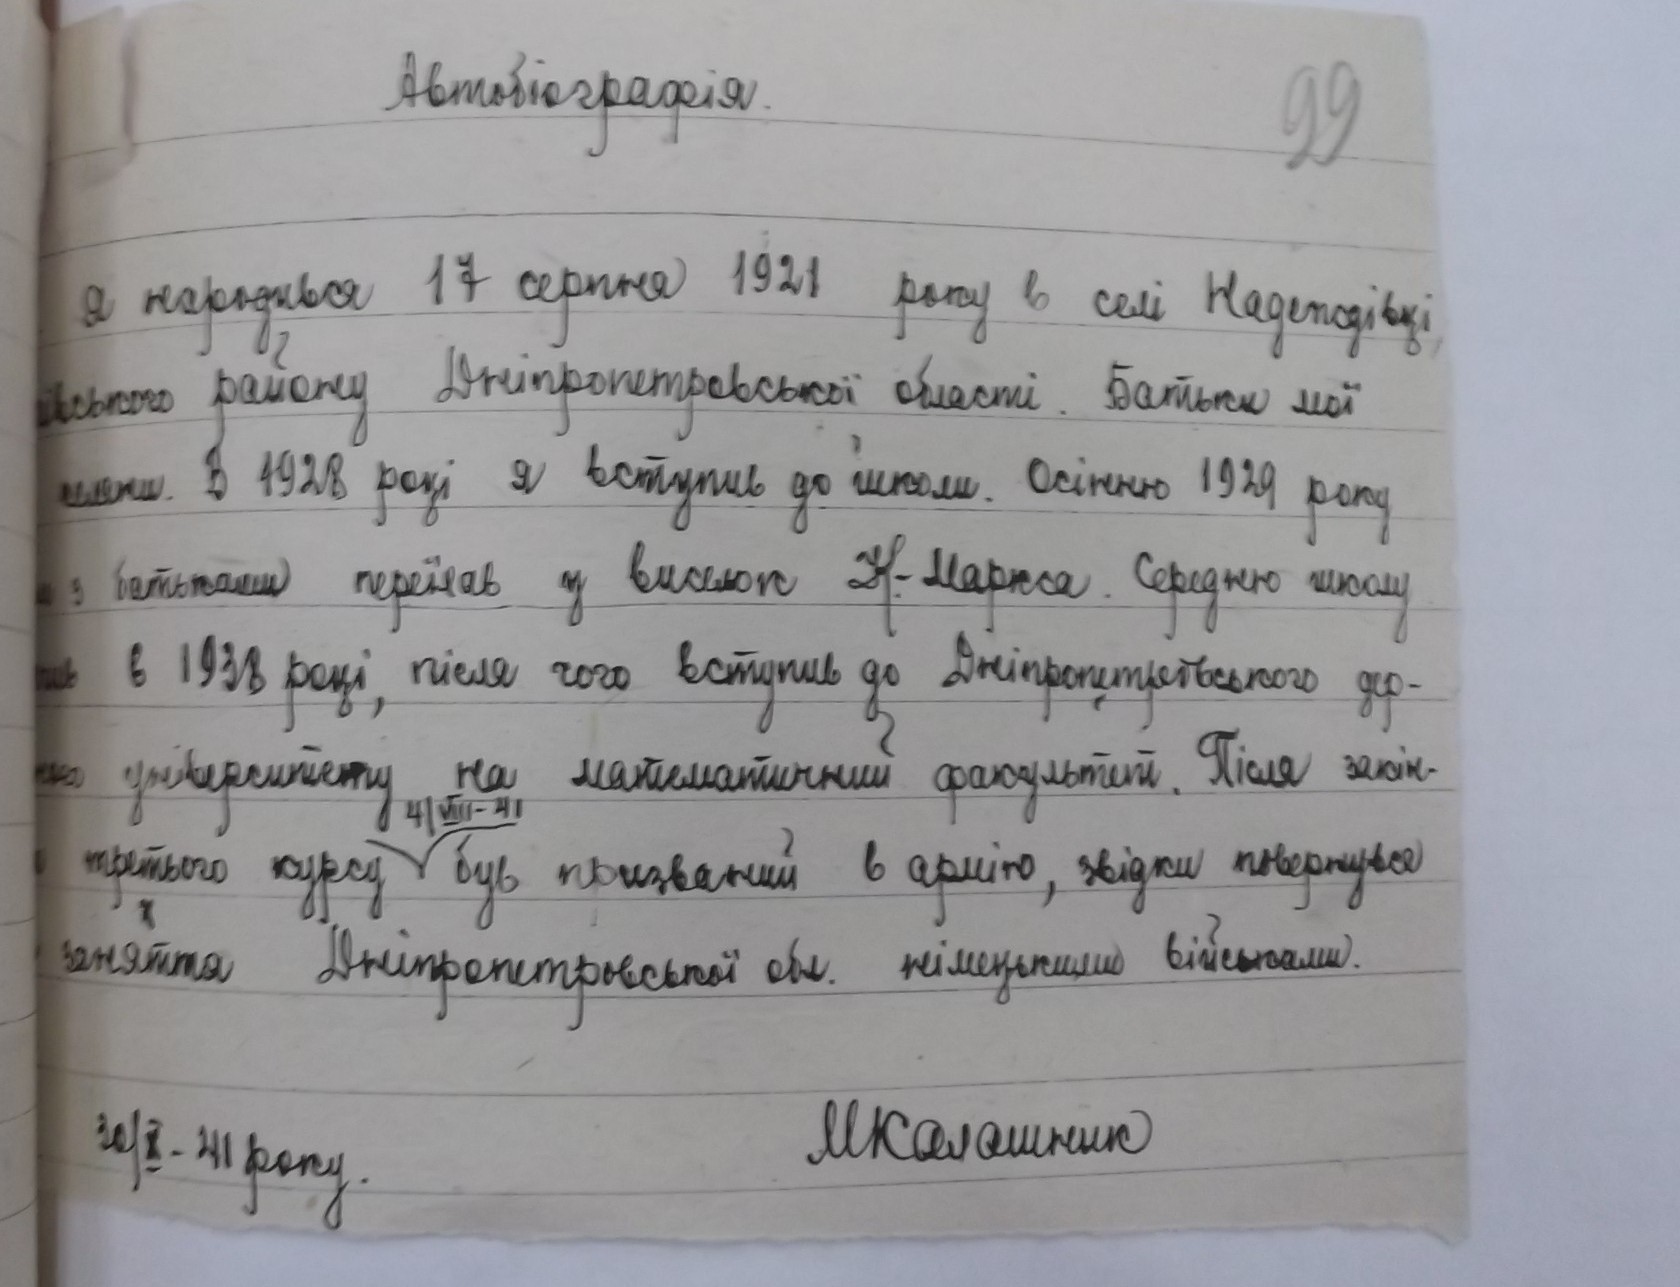 Автобіографія.
99
Я народився 17 серпня 1921 року в селі Надеждівці,
району Дніпропетровської області. Батьки мої
В 1928 році я вступив до школи. Осінню 1929 року
з батьками переїхав у виселок К.-Маркса. Середню школу
в 1938 році, після чого вступив до Дніпропетровського дер-
університету на математичний факультет. Після закін-
4/VIII-41
третього курсу був призваний в армію, звідки повернувся
заняття Дніпропетровської обл. німецькими військами.
30/X - 41 року.
МКалашник